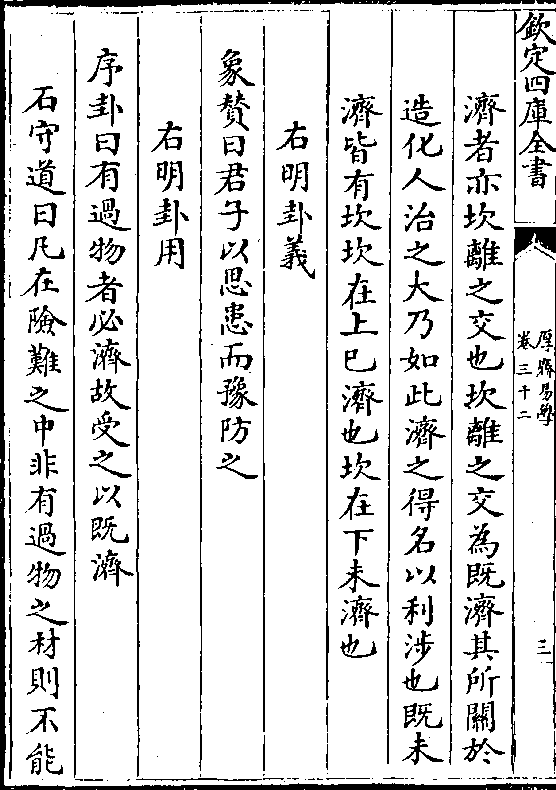 欽定四庫全書
厚齋易學
卷三十二
三
濟者亦坎離之交也坎離之交為既濟其所關於
造化人治之大乃如此濟之得名以利涉也既未
濟皆有坎坎在上已濟也坎在下未濟也
右明卦義
象贊曰君子以思患而豫防之
右明卦用
序卦曰有過物者必濟故受之以既濟
石守道曰凡在險難之中非有過物之材則不能